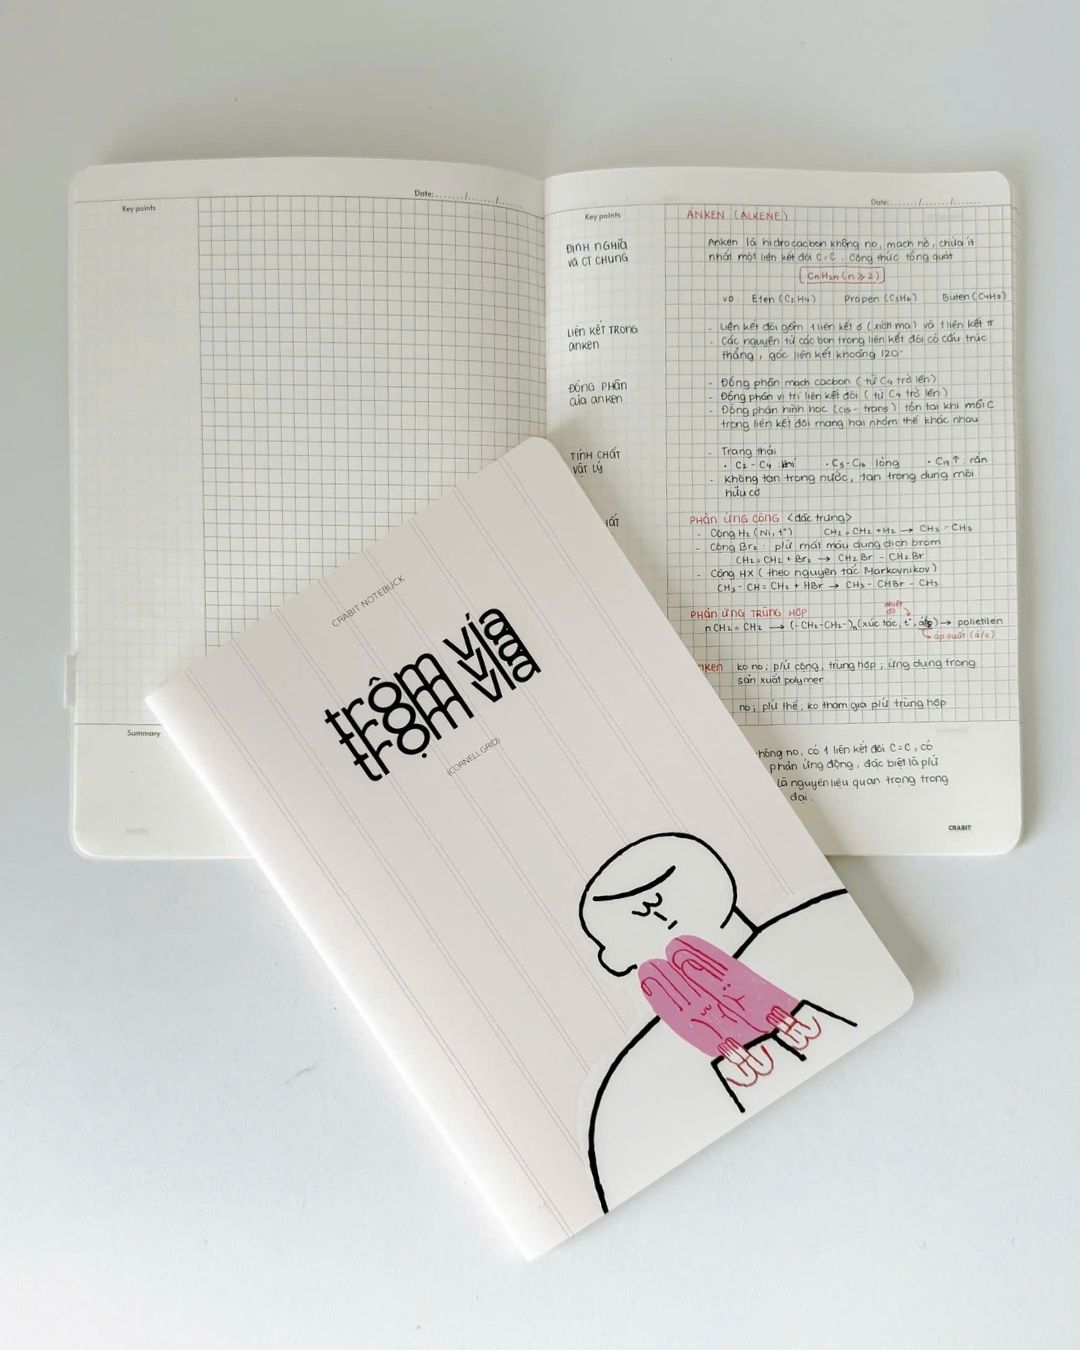 Date:......./......./.......
Key points
Summary
Date:......./......./.......
Key points
ANKEN (ALKENE)
ĐỊNH NGHĨA
và CT CHUNG
Anken là hidrocacbon không no, mạch hở, chứa ít
nhất một liên kết đôi C=C. Công thức tổng quát
CnH2n (n ≥ 2)
VD. Eten (C2H4) Propen (C3H6) Buten (C4H8)
LIÊN KẾT TRONG
anken
- Liên kết đôi gồm 1 liên kết σ (xích ma) và 1 liên kết π
- Các nguyên tử các bon trong liên kết đôi có cấu trúc
thẳng, góc liên kết khoảng 120°
ĐỒNG PHÂN
của anken
- Đồng phân mạch cacbon (từ C4 trở lên)
- Đồng phân vị trí liên kết đôi (từ C4 trở lên)
- Đồng phân hình học (cis - trans) tồn tại khi mỗi C
trong liên kết đôi mang hai nhóm thế khác nhau
TÍNH CHẤT
VẬT LÝ
- Trạng thái
• C2 - C4 : khí • C5 - C16 : lỏng • C17 ↑ : rắn
- Không tan trong nước, tan trong dung môi
hữu cơ
HẤT
PHẢN ỨNG CỘNG <đặc trưng>
- Cộng H2 (Ni, t°) CH2 = CH2 + H2 → CH3 - CH3
- Cộng Br2 : p/ứ mất màu dung dịch brom
CH2 = CH2 + Br2 → CH2Br - CH2Br
- Cộng HX (theo nguyên tắc Markovnikov)
CH3 - CH = CH2 + HBr → CH3 - CHBr - CH3
nhiệt
độ
PHẢN ỨNG TRÙNG HỢP
nCH2 = CH2 → (-CH2-CH2-)n (xúc tác, t°, á/s) → polietilen
áp suất (á/s)
nken ko no; p/ứ cộng, trùng hợp; ứng dụng trong
sản xuất polymer
no; p/ứ thế; ko tham gia p/ứ trùng hợp
hông no, có 1 liên kết đôi C=C, có
phản ứng động, đặc biệt là p/ứ
là nguyên liệu quan trọng trong
đại.
CRABIT
CRABIT NOTEBUCK
trộm vía
trộm vía
trộm vía
(CORNELL GRID)